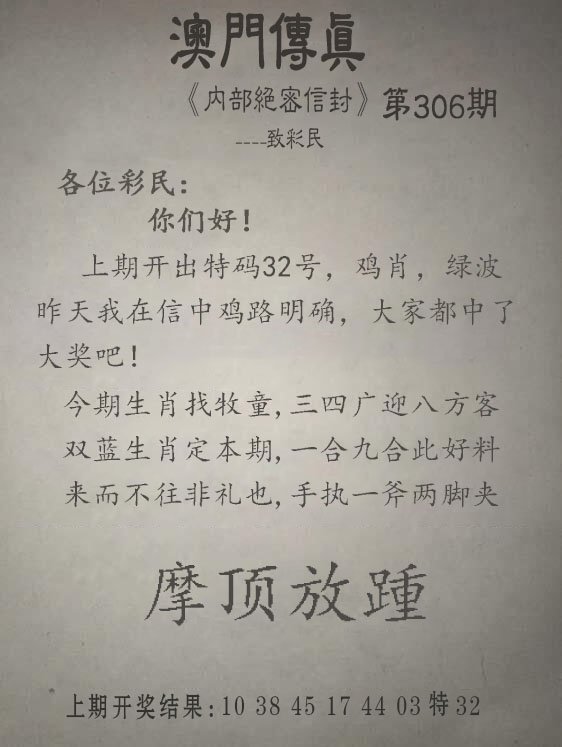 澳門傳真
《内部絕密信封》第306期
----致彩民
各位彩民：
你们好！
上期开出特码32号，鸡肖，绿波
昨天我在信中鸡路明确，大家都中了
大奖吧！
今期生肖找牧童,三四广迎八方客
双蓝生肖定本期,一合九合此好料
来而不往非礼也,手执一斧两脚夹
摩顶放踵
上期开奖结果:10 38 45 17 44 03 特 32